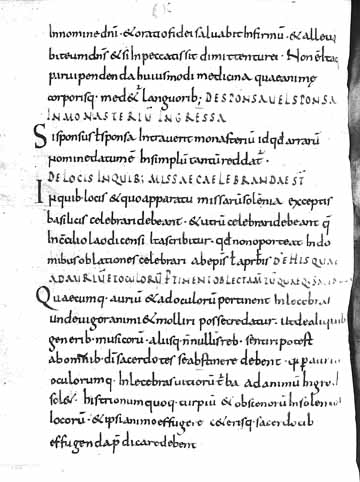 In nomine dni · & oratio fidei saluabit infirmu · & alleui
bit eum dns & si in peccatis sit dimittentur ei · Non est itaq
paruipendenda huiusmodi medicina quae animę
corporisq · med&ur languorib; DESPONSAUELSPONSA
INMONASTERIUINGRESSA
Si sponsus t sponsa intrauerit monasteriu id qd arraru
nomine datum e in simplu tantu reddat ·
DELOCISINQUIB;MISSAECAELEBRANDAEST
In quib locis & quo apparatu missaru solenia exceptis
basilicis celebrari debeant · & utru celebrari debeant q
In cilio laodicensi ita scribitur · qd non oporteat in do
mibus oblationes celebrari ab epis t a prbris DEHISQUAE
ADAURIU&OCULORU
Quaecumq · auriu & ad oculoru pertinent inlecebras
unde uigor animi & molliri posse credatur · ut de aliquib
generib musicoru · aliisq nnullis reb · sentiri potest
ab omib; di sacerdotes se abstinere debent · q p auriu
oculorumq · inlecebras uitioru tba ad animu ingredi
sol& · histrionum quoq · turpiu & obscenoru insolentias
iocoru · & ipsi animo effugere & ceteris q · sacerdotib
effugenda pdicare debent